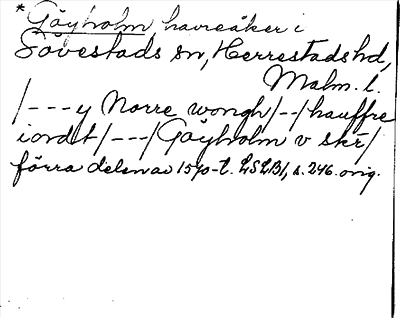 * Göyholm havreåker i
Sövestads sn, Herrestads hd,
Malm. l.
/---y Norre wongh/--/hauffre
iordt/---/Göyholm v skr/
förra delen av 1570-t. LSLB1, s. 246. orig.